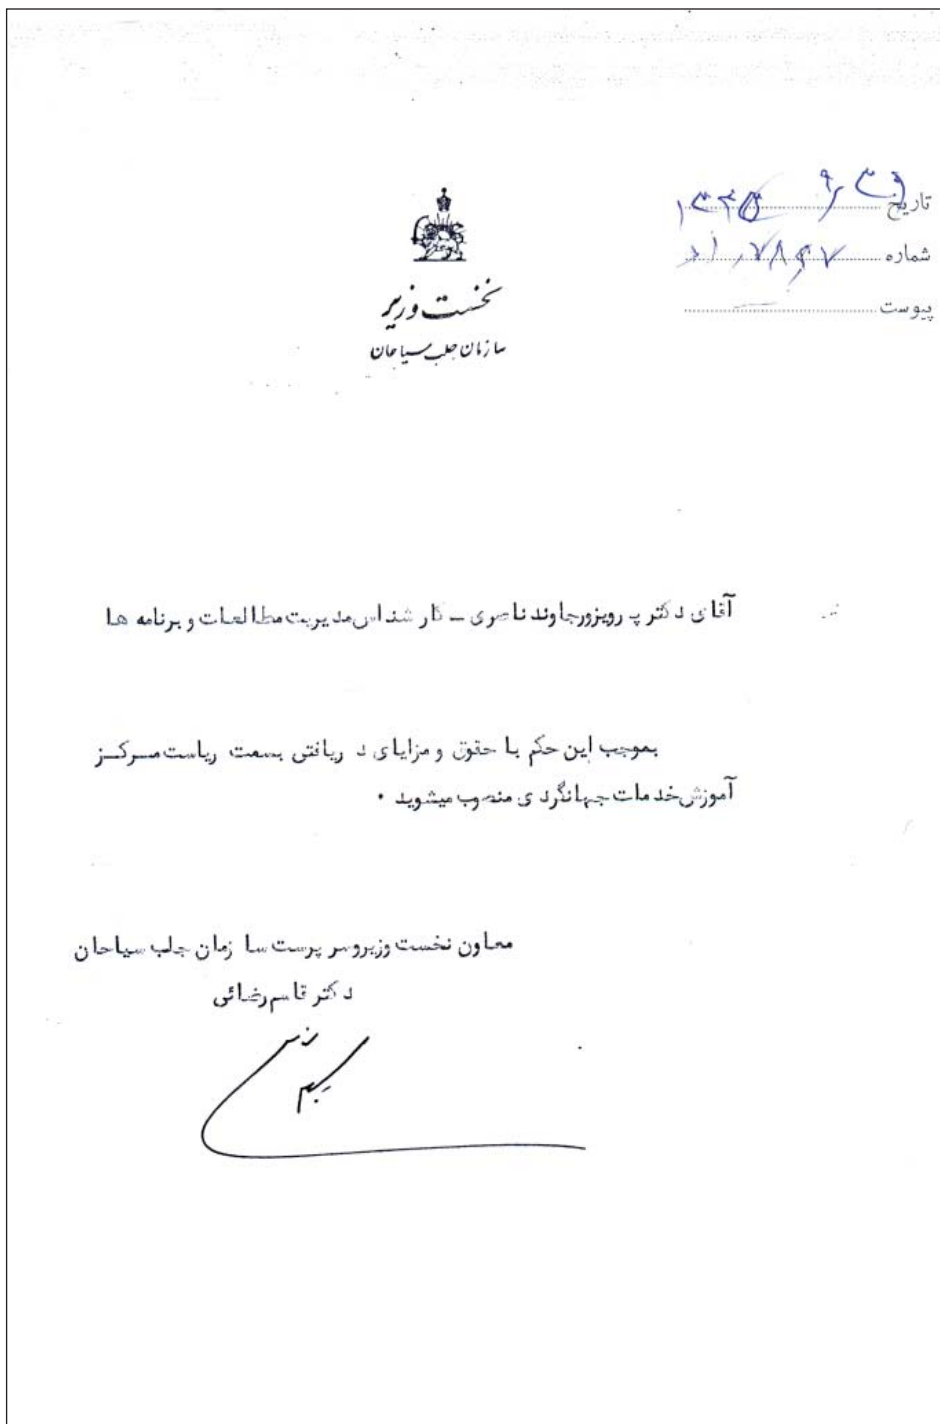 تاریخ
شماره
پیوست
نخست وزیر
سازمان جلب سیاحان
آقای دکتر پرویز ورجاوند ناصری ـ کارشناس مدیریت مطالعات و برنامه ها
بموجب این حکم با حقوق و مزایای دریافتی بسمت ریاست مرکز
آموزش خدمات جهانگردی منصوب میشوید ۰
معاون نخست وزیر و سرپرست سازمان جلب سیاحان
دکتر قاسم رضائی